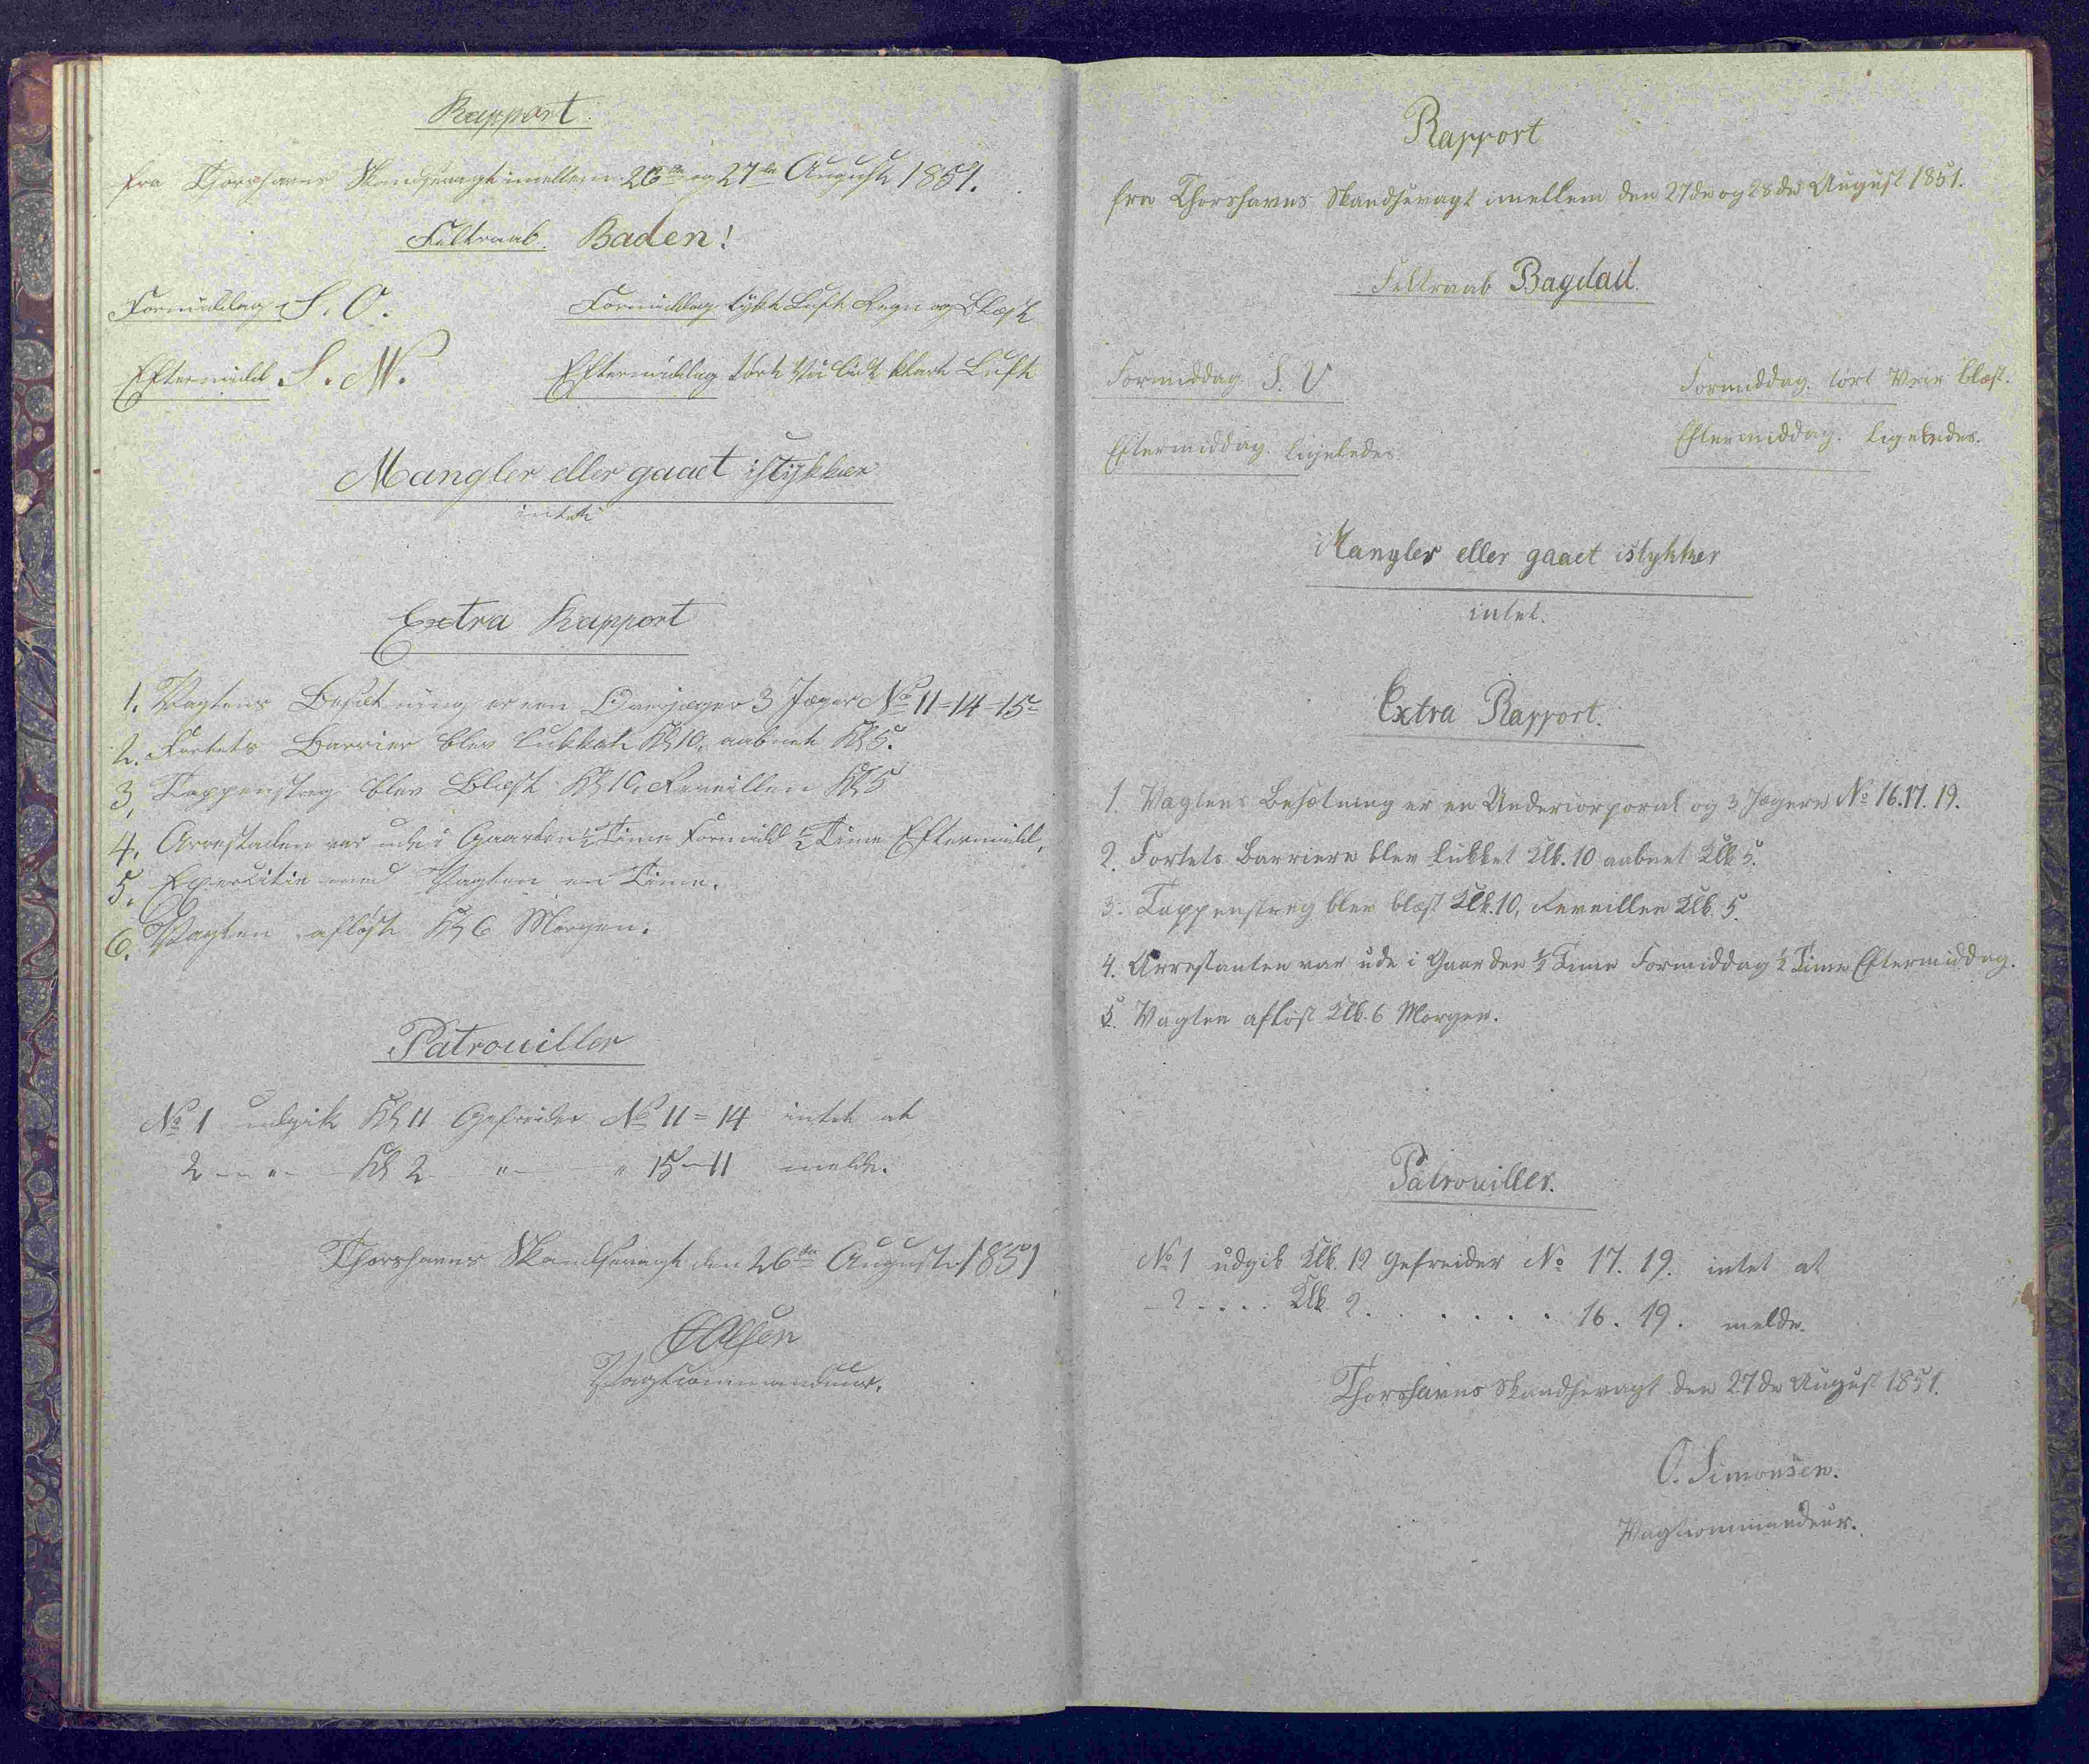 Rapport.
fra Thorshavns Skandsevagt imellem 26de og 27de August 1851.
Feltraab. Baden!
Formiddag S. O. Formiddag tykt Luft Regn og Blæst
Eftermidd S. W. Eftermiddag tørt Veir lidt klart Luft
Mangler eller gaaet istykker
intet
Extra Rapport
1. Vagtens Besætning er een Overjæger 3 Jæger No 11=14=15
2. Fortets Barrier blev lukket Kl 10, aabnet Kl 5.
3, Tappenstreg blev Blæst Kl 10, Reveillen Kl 5
4, Arrestaden var ude i Gaarden ½ Time Formidd ½ Time Eftermidd,
5. Exercitie med Vagten en Time.
6. Vagten afløst Kl 6 Morgen.
Patrouiller
No 1 udgik Kl 11 Gefreider No 11=14 intet at
2 — " — Kl 2 " — " 15-11 melde.
Thorshavns Skandsevagt den 26de August 1851
Olsen
Vagtcommandeur.
Rapport
fra Thorshavns Skandsevagt imellem den 27de og 28de August 1851.
Feltraab Bagdad.
Formiddag. S. V Formiddag. tørt Veir blæst.
Eftermiddag. ligeledes. Eftermiddag. ligeledes.
Mangler eller gaaet istykker
intet.
Extra Rapport.
1. Vagtens Besætning er en Undercorporal og 3 Jægere No 16.17.19.
2. Fortets Barriere blev lukket Klk. 10 aabnet Klk 5.
3. Tappenstreg blev blæst Klk. 10, Reveillen Klk. 5.
4. Arrestanten var ude i Gaarden ½ Time Formiddag ½ Time Eftermiddag.
5. Vagten afløst Klk. 6 Morgen.
Patrouiller.
No 1 udgik Klk. 12 Gefreider No 17. 19. intet at
- 2 . . . . Klk 2. . . . . . . 16. 19. melde.
Thorshavns Skandsevagt den 27de August 1851.
O. Simonsen.
Vagtcommandeur.